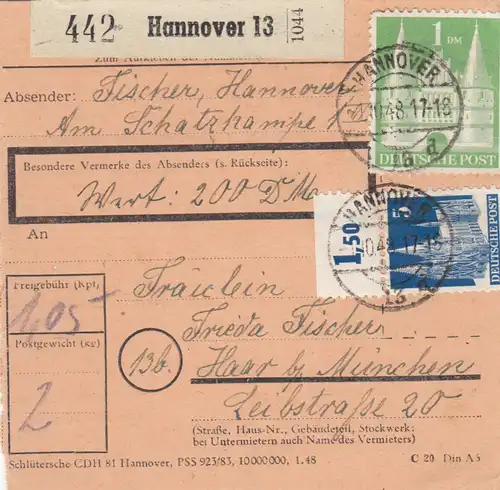 442 Hannover 13 1044
Zum Aufkleben
Absender: Fischer, Hannover
Am Schatzkampe 1
Besondere Vermerke des Absenders (s. Rückseite):
Wert: 200 DM
1 DM
DEUTSCHE POST
HANNOVER
10.48.17-18
1,50
5
DEUTSCHE POST
HANNOVER
10.48.17-18
13 a
An
Freigebühr (Rpf)
1,05
Postgewicht (kg)
2
Fräulein
Frieda Fischer
13b. Haar b/ München
Leibstraße 20
(Straße, Haus-Nr., Gebäudeteil, Stockwerk:
bei Untermietern auch Name des Vermieters)
Schlütersche CDH 81 Hannover, PSS 923/83, 10000000, 1.48 C 20 Din A5